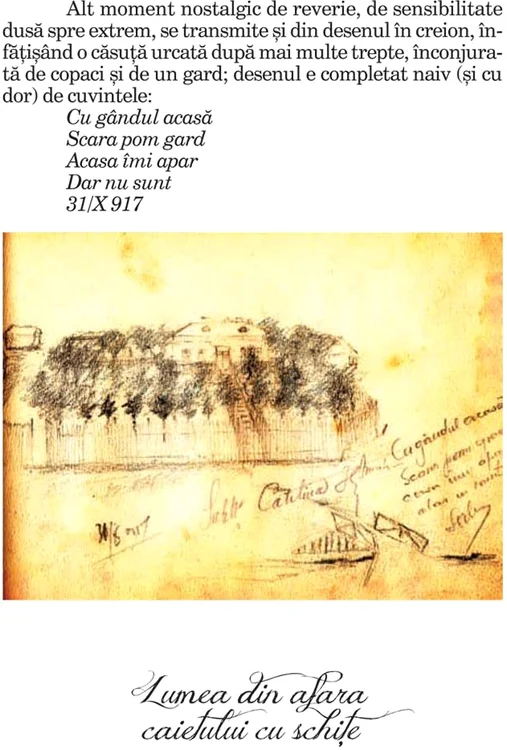 Alt moment nostalgic de reverie, de sensibilitate
dusă spre extrem, se transmite și din desenul în creion, în-
fățișând o căsuță urcată după mai multe trepte, înconjura-
tă de copaci și de un gard; desenul e completat naiv (și cu
dor) de cuvintele:
Cu gândul acasă
Scara pom gard
Acasa îmi apar
Dar nu sunt
31/X 917
Cu gândul acasă
Scara pom
Catelina
Lumea din afara
caietului cu schițe